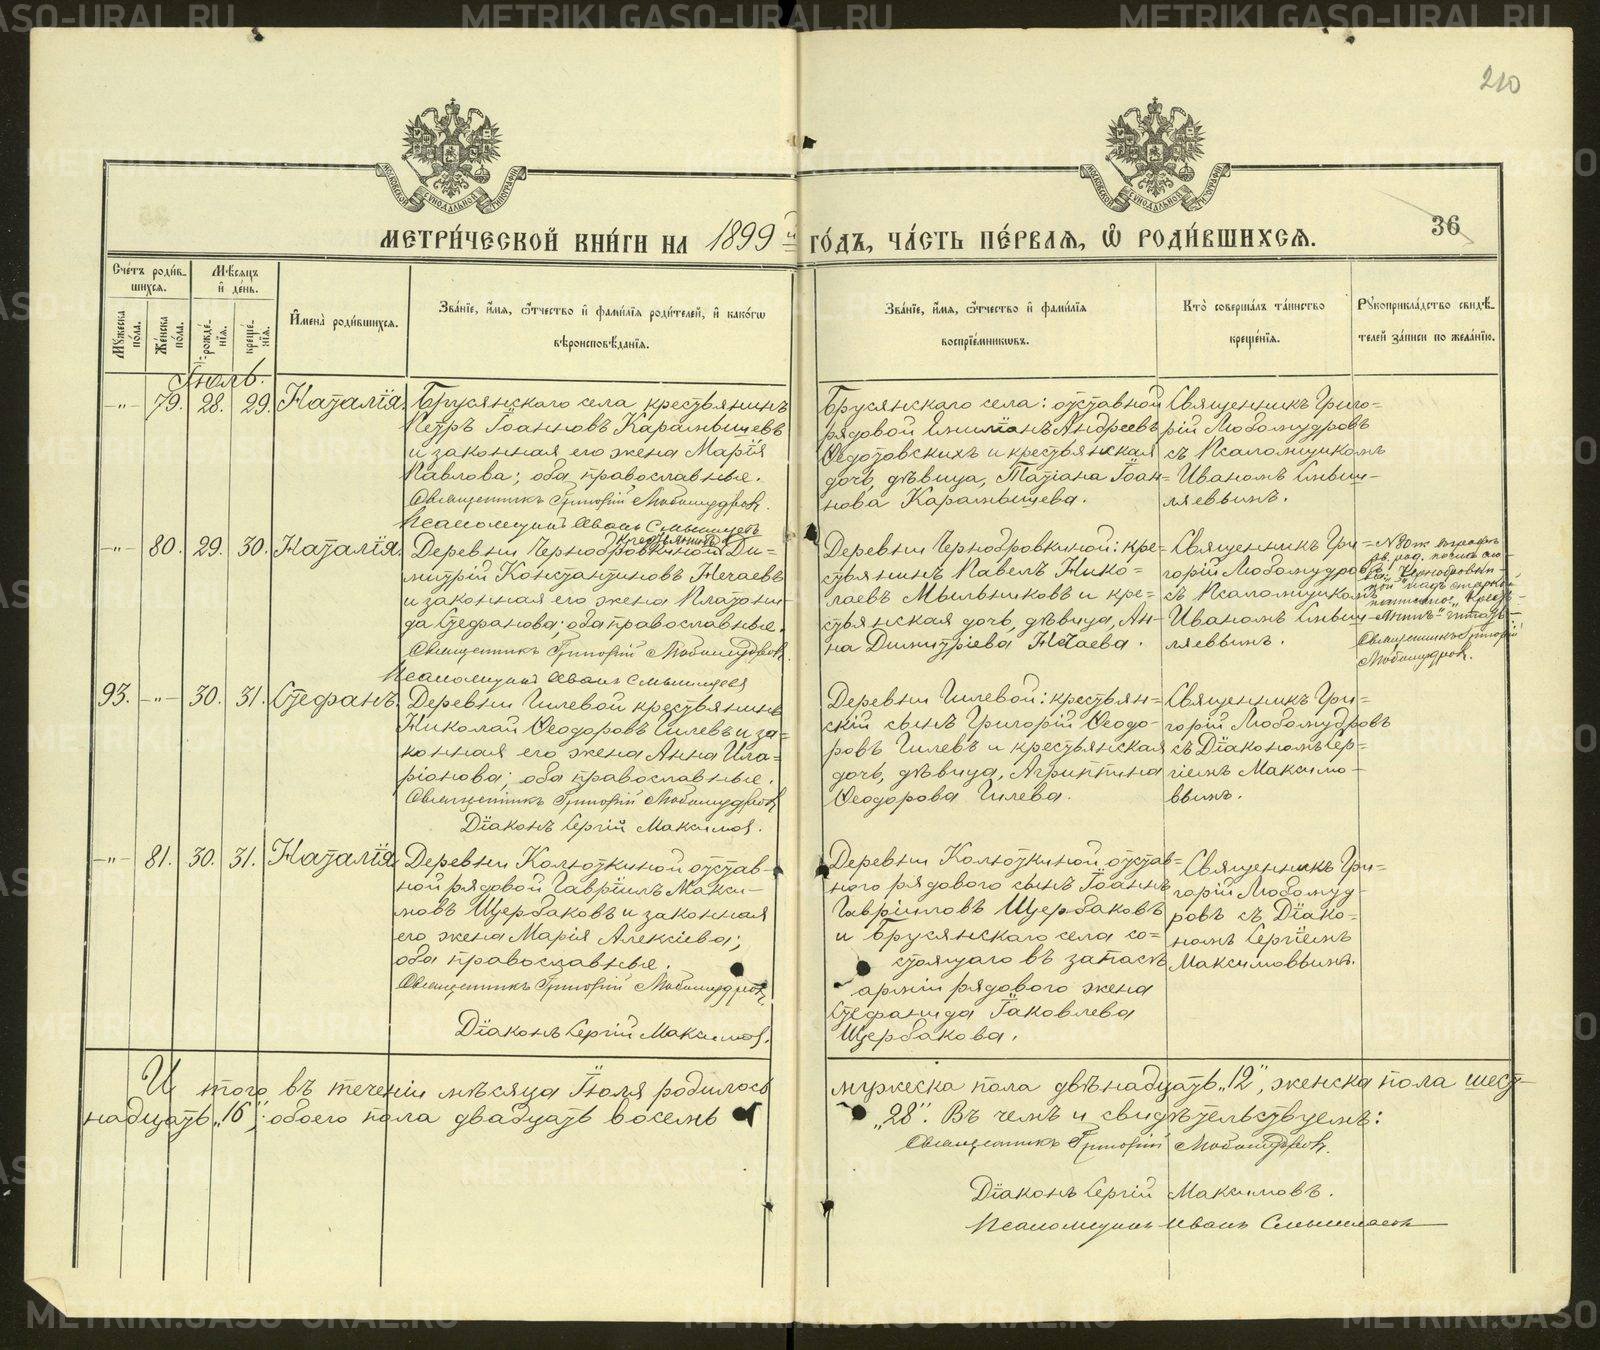 METRIKI.GASO-URAL.RU
210
МОСКОВСКОЙ СѴНОДАЛЬНОЙ ТИПОГРАФІИ
МОСКОВСКОЙ СѴНОДАЛЬНОЙ ТИПОГРАФІИ
МЕТРИ́ЧЕСКОЙ КНИ́ГИ НА 1899й ГО́ДЪ, ЧА́СТЬ ПЕ́РВАЯ, Ѿ РОДИ́ВШИХСѦ.
36
Сче́тъ роди́в-
шихсѧ.
Мꙋжеска по́ла.
Же́нска по́ла.
Мѣ́сѧцъ и҆ де́нь.
рожде́-нїѧ.
креще́-нїѧ.
И҆мена̀ роди́вшихсѧ.
Зва́нїе, и҆́мѧ, ѻ҆́тчество и҆ фами́лїѧ роди́телей, и҆ како́гѡ
вѣроисповѣ́данїѧ.
Зва́нїе, и҆́мѧ, ѻ҆́тчество и҆ фами́лїѧ
воспрїе́мникѡвъ.
Кто̀ соверша́лъ та́инство
креще́нїѧ.
Рꙋкоприкла́дство свидѣ́-
телей за́писи по жела́нїю.
Іюль.
-"- 79. 28. 29. Наталія.
Брусянскаго села крестьянинъ
Петръ Іоанновъ Карамышевъ
и законная его жена Марія
Павлова; оба православные.
Священникъ Григорій Любомудровъ.
Псаломщикъ Иванъ Смышляевъ
Брусянскаго села: отставной
рядовой Емиліанъ Андреевъ
Ѳедотовскихъ и крестьянская
дочь, дѣвица, Татіана Іоан-
нова Карамышева.
Священникъ Григо-
рій Любомудровъ
съ Псаломщикомъ
Иваномъ Смыш-
ляевымъ.
-"- 80. 29. 30. Наталія.
крестьянинъ
Деревни Чернобровкиной Ди-
митрій Константиновъ Нечаевъ
и законная его жена Платони-
да Стефанова; оба православные.
Священникъ Григорій Любомудровъ.
Псаломщикъ Иванъ Смышляевъ
Деревни Чернобровкиной: кре-
стьянинъ Павелъ Нико-
лаевъ Мыльниковъ и кре-
стьянская дочь, дѣвица, Ан-
на Димитріева Нечаева.
Священникъ Гри-
горій Любомудровъ
съ Псаломщикомъ
Иваномъ Смыш-
ляевымъ.
Чернобровки-
ной"
Священникъ Григорій
Любомудровъ.
93. -"- 30. 31. Стефанъ.
Деревни Гилевой крестьянинъ
Николай Ѳеодоровъ Гилевъ и за-
конная его жена Анна Ила-
ріонова; оба православные.
Священникъ Григорій Любомудровъ
Діаконъ Сергій Максимов.
Деревни Гилевой: крестьян-
скій сынъ Григорій Ѳеодо-
ровъ Гилевъ и крестьянская
дочь, дѣвица, Агриппина
Ѳеодорова Гилева.
Священникъ Гри-
горій Любомудровъ
съ Діакономъ Сер-
гіемъ Максимо-
вымъ.
-"- 81. 30. 31. Наталія.
Деревни Колюткиной отстав-
ной рядовой Гавріилъ Макси-
мовъ Щербаковъ и законная
его жена Марія Алексіева;
оба православные.
Священникъ Григорій Любомудровъ.
Діаконъ Сергій Максимов.
Деревни Колюткиной отстав-
ного рядового сынъ Іоаннъ
Гавріиловъ Щербаковъ
и Брусянскаго села со-
стоящаго въ запасѣ
арміи рядового жена
Стефанида Іаковлева
Щербакова.
Священникъ Гри-
горій Любомуд-
ровъ съ Діако-
номъ Сергіемъ
Максимовымъ.
И того въ теченіи мѣсяца Іюля родилось мужеска пола двѣнадцать „12", женска пола шест-
надцать „16"; обоего пола двадцать восемь „28". Въ чемъ и свидѣтельствуемъ:
Священникъ Григорій Любомудровъ.
Діаконъ Сергій Максимовъ.
Псаломщикъ Иванъ Смышляевъ